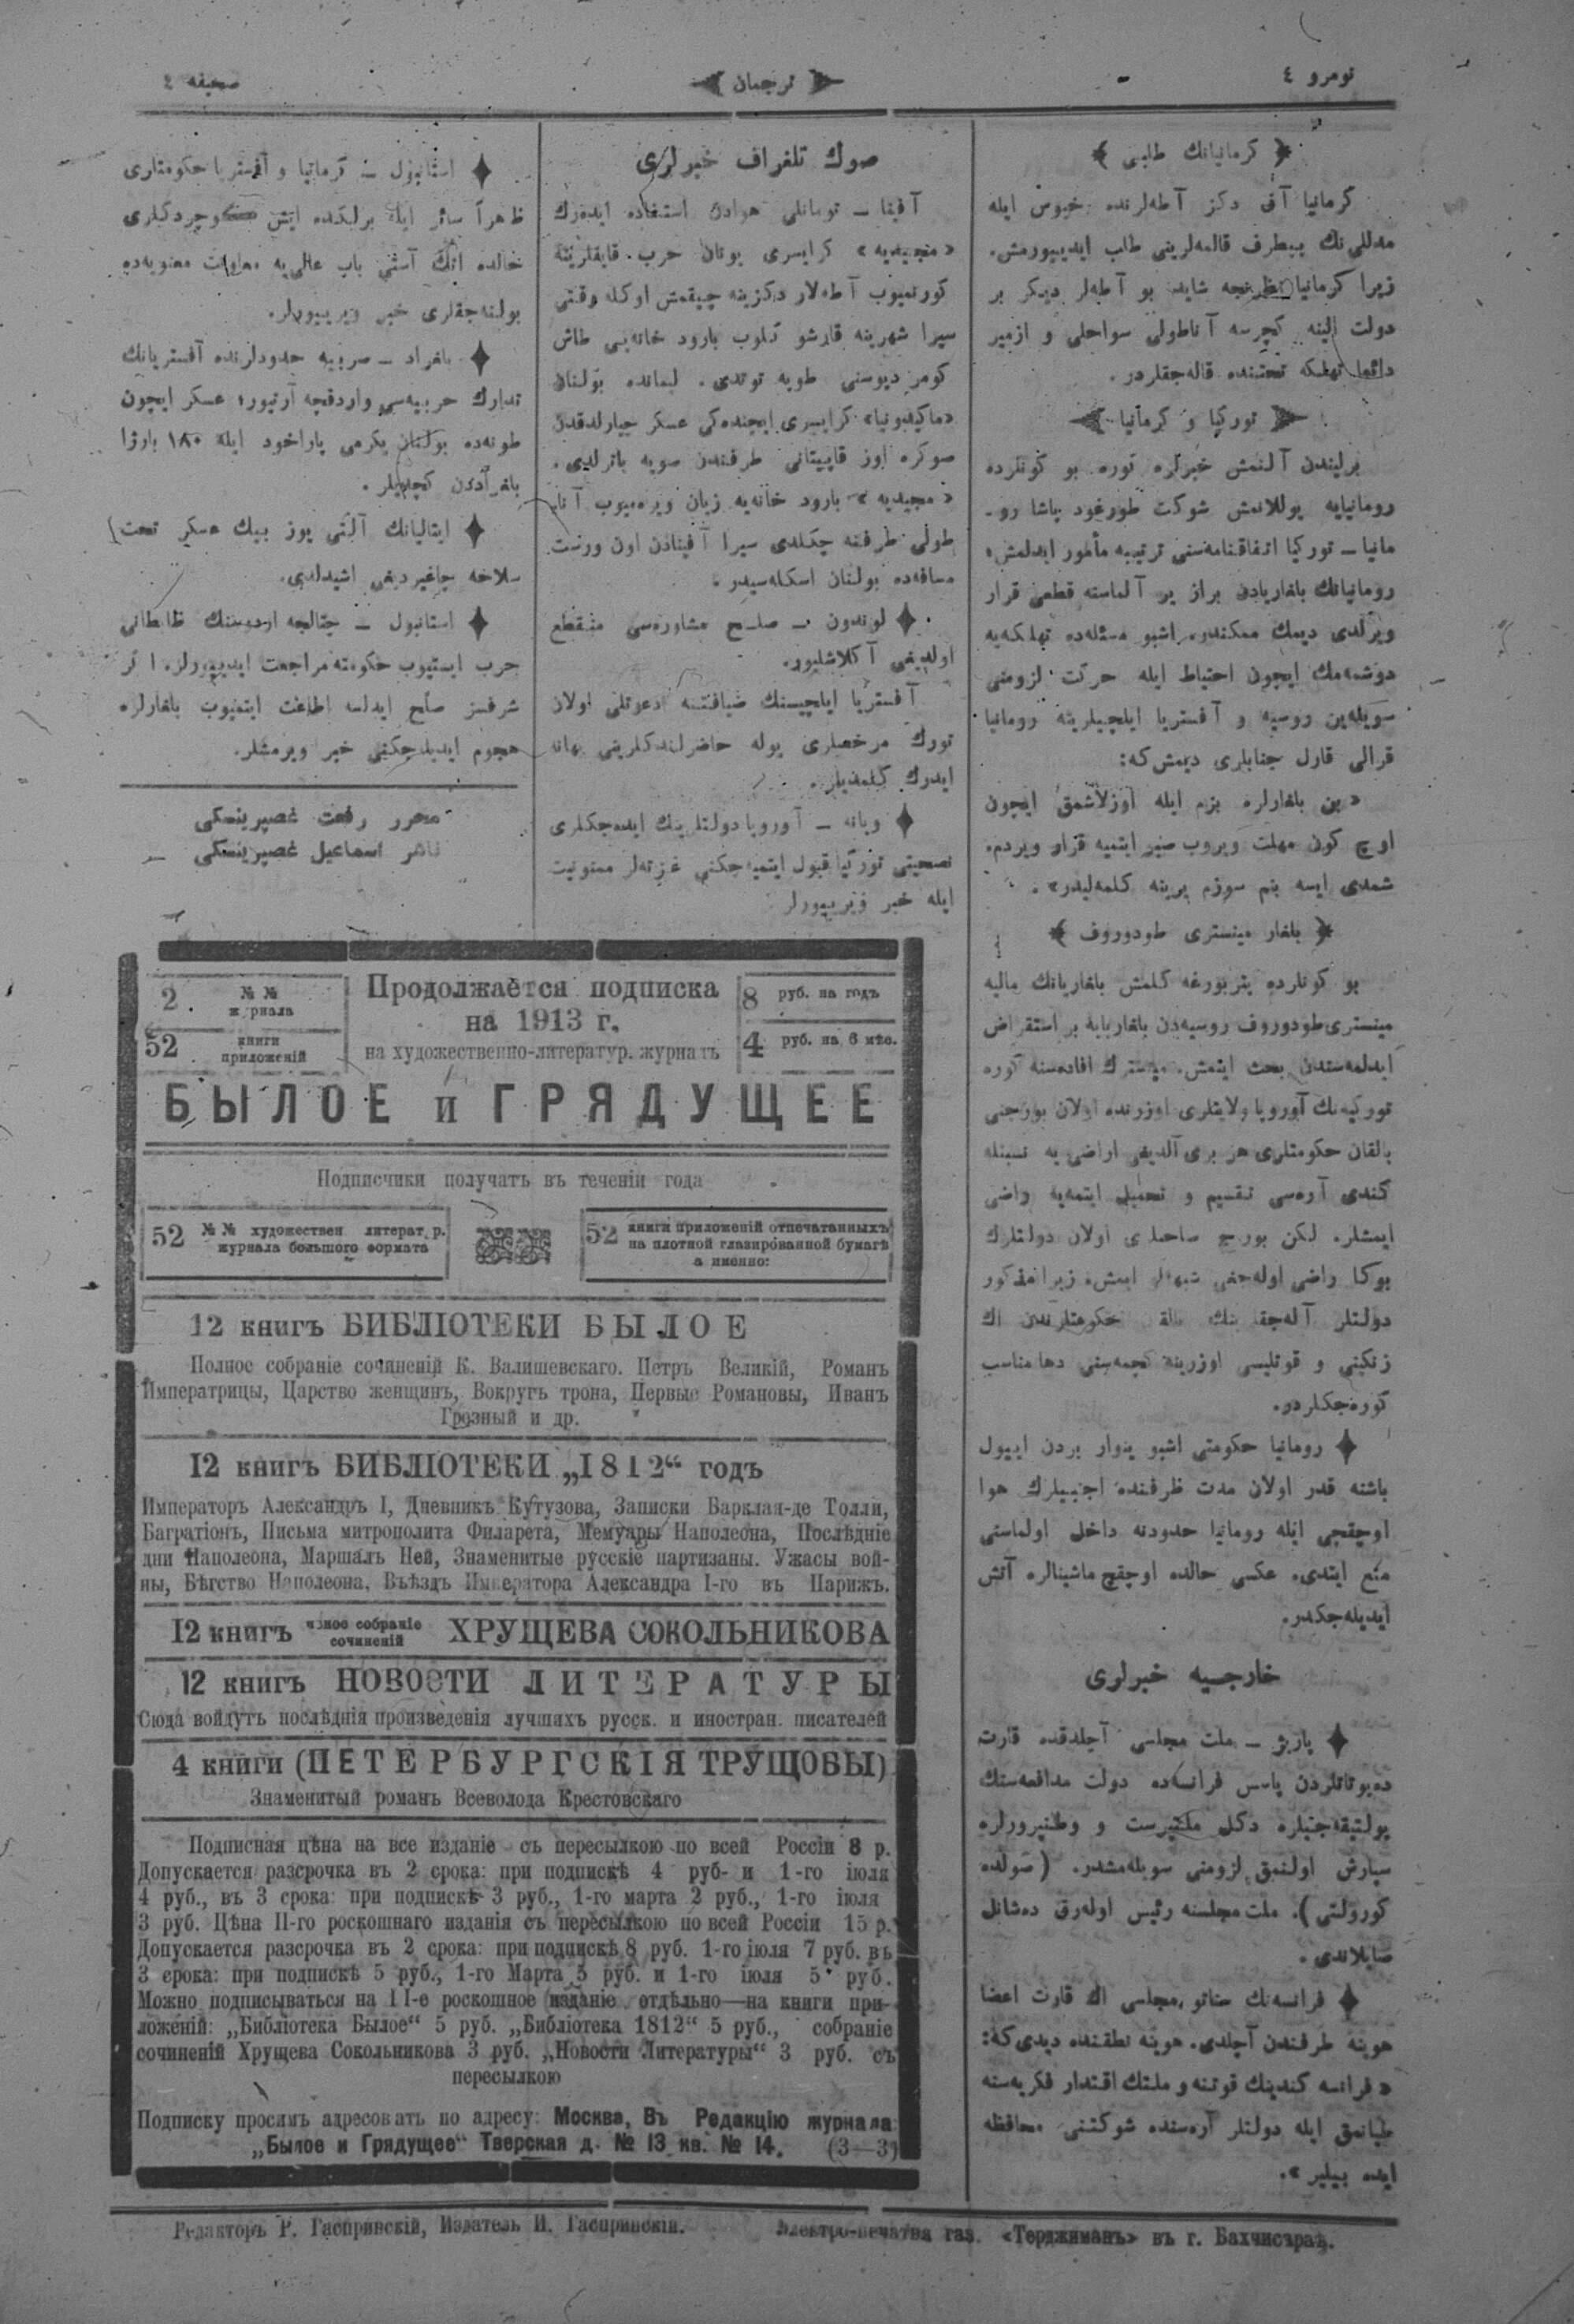 نومرو ٤
ترجمان
صحیفه ٤
كرمانیانك طلبی
كرمانیا آق دكز آطه‌لرنده خیوس ایله
مدللی‌نك بیطرف قالمه‌لرینی طلب ایدییورمش.
زیرا كرمانیا نظرنجه شاید بو آطه‌لر دیكر بر
دولت الینه كچرسه آناطولی سواحلی و ازمیر
دائما تهلكه تحتنده قاله‌جقلردر.
توركیا و كرمانیا
برلیندن آلنمش خبرلره كوره بو كونلرده
رومانیایه یوللانمش شوكت طورغود پاشا رو-
مانیا – توركیا اتفاقنامه‌سنی ترتیبه مأمور ایدلمش؛
رومانیانك بلغاریادن براز یر آلماسنه قطعی قرار
ویرلدی دیمك ممكندر. اشبو مسئله‌ده تهلكه‌یه
دوشمه‌مك ایچون احتیاط ایله حركت لزومنی
سویله‌ین روسیه و آفستریا ایلچیلرینه رومانیا
قرالی قارل جنابلری دیمش‌كه:
«بن بلغارلره بزم ایله اوزلاشمق ایچون
اوچ كون مهلت ویروب صبر ایتمیه قرار ویردم.
شمدی ایسه بنم سوزم یرینه كلمه‌لیدر».
بلغار مینستری طودوروف
بو كونلرده پتربورغه كلمش بلغاریانك مالیه
مینستری طودوروف روسیه‌دن بلغاریایه بر استقراض
ایدلمه‌سندن بحث ایتمش. مینسترك افاده‌سنه كوره
توركیه‌نك آوروپا ولایتلری اوزرنده اولان بورجنی
بالقان حكومتلری هر بری آلدیغی اراضی یه نسبتله
كندی آره‌سی تقسیم و تحمیل ایتمه‌یه راضی
ایمشلر. لكن بورج صاحبلری اولان دولتلرك
بوكا راضی اوله‌جغی شبهه‌لی ایمش؛ زیرا مذكور
زنكینی و قوتلیسی اوزرینه كچمه‌سنی دها مناسب
كوره‌جكلردر.
رومانیا حكومتی اشبو ینوار بردن اییول
باشنه قدر اولان مدت ظرفنده اجنبیلرك هوا
اوچقچی ایله رومانیا حدودنه داخل اولماسنی
منع ایتدی. عكسی حالده اوچقچ ماشینالره آتش
ایدیله‌جكدر.
خارجیه خبرلری
پاریژ – ملت مجلسی آچلدقده قارت
ده‌پوتاتلردن پاسی فرانسه‌ده دولت مدافعه‌سنك
پولیتیقه‌جیلره دكل ملتپرست و وطنپرورلره
سپارش اولنمق لزومنی سویله‌مشدر. (صولده
كورولتی). ملت مجلسنه رئیس اوله‌رق ده‌شانل
صایلاندی.
فرانسه‌نك سناتو مجلسی اك قارت اعضا
هوینه طرفندن آچلدی. هوینه نطقنده دیدی‌كه:
«فرانسه كندینك قوتنه و ملتك اقتدار فكریه‌سنه
طیانمق ایله دولتلر آره‌سنده شوكتنی محافظه
ایده بیلیر».
صوك تلغراف خبرلری
آفینا – تومانلی هوادن استفاده ایده‌رك
«مجیدیه» كرایسری یونان حرب قایقلرینه
كورنمیوب آطه‌لار دكزینه چیقمش اوكله وقتی
سیرا شهرینه قارشو كلوب بارود خانه‌یی طاش
كومر دپوسنی طوپه توتدی. لیمانده بولنان
«ماكیدونیا» كرایسری ایچنده‌كی عسكر چیارلدقدن
صوكره اوز قاپیتانی طرفندن صویه باترلدی.
«مجیدیه» بارود خانه‌یه زیان ویره‌میوب آنا-
طولی طرفنه چكلدی سیرا آفینادن اون ورست
مسافه‌ده بولنان اسكله‌سیدر.
لوندون – صلح مشاوره‌سی منقطع
اولدیغی آكلاشلیور.
آفستریا ایلچیسنك ضیافتنه دعوتلی اولان
تورك مرخصلری یوله حاضرلندكلرینی بهانه
ایدرك كلمدیلر.
ویانه – آوروپا دولتلرینك ایده‌جكلری
نصحیتی توركیا قبول ایتمیه‌جكنی غزته‌لر ممنونیت
ایله خبر ویرییورلر.
استانبول – كرمانیا و آفستریا حكومتلری
ظاهراً سائر ایله برلكده ایش كوچردكلری
حالده انك آستی باب عالی‌یه معاونت معنویه‌ده
بولنه‌جقلری خبر ویرییورلر.
بلغراد – صربیه حدودلرنده آفستریانك
تدارك حربیه‌سی واردقچه آرتیور؛ عسكر ایچون
طونه‌ده بولنان یكرمی پاراخود ایله ١٨٠ بارژا
بلغراددن كچدیلر.
ایتالیانك آلتی یوز بیك عسكر تحت
سلاحه چاغیردیغی اشیدلدی.
استانبول – چتالجه اردوسنك ظابطانی
حرب ایستیوب حكومته مراجعت ایدییورلر. اكر
شرفسز صلح ایدلسه اطاعت ایتمیوب بلغارلره
هجوم ایدیله‌جكنی خبر ویرمشلر.
محرر رفعت غصپرینسكی
ناشر اسماعیل غصپرینسكی
2 №№ журнала
52 книги приложеній
Продолжается подписка
на 1913 г.
на художественно-литератур. журналъ
8 руб. на годъ
4 руб. на 6 мѣс.
БЫЛОЕ и ГРЯДУЩЕЕ
Подписчики получатъ въ теченіи года
52 №№ художествен литерат. р.
журнала большого формата
52 книги приложеній отпечатанныхъ
на плотной глазированной бумагѣ
а именно:
12 книгъ БИБЛІОТЕКИ БЫЛОЕ
Полное собраніе сочиненій К. Валишевскаго. Петръ Великій, Романъ
Императрицы, Царство женщинъ, Вокругъ трона, Первые Романовы, Иванъ
Грозный и др.
12 книгъ БИБЛІОТЕКИ „1812“ годъ
Императоръ Александръ I, Дневникъ Кутузова, Записки Барклая-де Толли,
Багратіонъ, Письма митрополита Филарета, Мемуары Наполеона, Послѣдніе
дни Наполеона, Маршалъ Ней, Знаменитые русскіе партизаны. Ужасы вой-
ны, Бѣгство Наполеона, Въѣздъ Императора Александра I-го въ Парижъ.
12 книгъ собраніе сочиненій ХРУЩЕВА СОКОЛЬНИКОВА
12 книгъ НОВОСТИ ЛИТЕРАТУРЫ
Сюда войдутъ послѣднія произведенія лучшихъ русск. и иностран. писателей
4 книги (ПЕТЕРБУРГСКІЯ ТРУЩОБЫ)
Знаменитый романъ Всеволода Крестовскаго
Подписная цѣна на все изданіе съ пересылкою по всей Россіи 8 р.
Допускается разсрочка въ 2 срока: при подпискѣ 4 руб- и 1-го іюля
4 руб., въ 3 срока: при подпискѣ 3 руб., 1-го марта 2 руб., 1-го іюля
3 руб. Цѣна II-го роскошнаго изданія съ пересылкою по всей Россіи 15 р.
Допускается разсрочка въ 2 срока: при подпискѣ 8 руб. 1-го іюля 7 руб. въ
3 срока: при подпискѣ 5 руб., 1-го Марта 5 руб. и 1-го іюля 5 руб.
Можно подписываться на II-е роскошное изданіе отдѣльно—на книги при-
ложеній: „Библіотека Былое“ 5 руб. „Библіотека 1812“ 5 руб., собраніе
сочиненій Хрущева Сокольникова 3 руб. „Новости Литературы“ 3 руб. съ
пересылкою
Подписку просимъ адресовать по адресу: Москва, Въ Редакцію журнала
„Былое и Грядущее“ Тверская д. № 13 кв. № 14. (3—3)
Редакторъ Р. Гаспринскій, Издатель И. Гаспринскій.
Электро-печатня газ. «Терджиманъ» въ г. Бахчисараѣ.